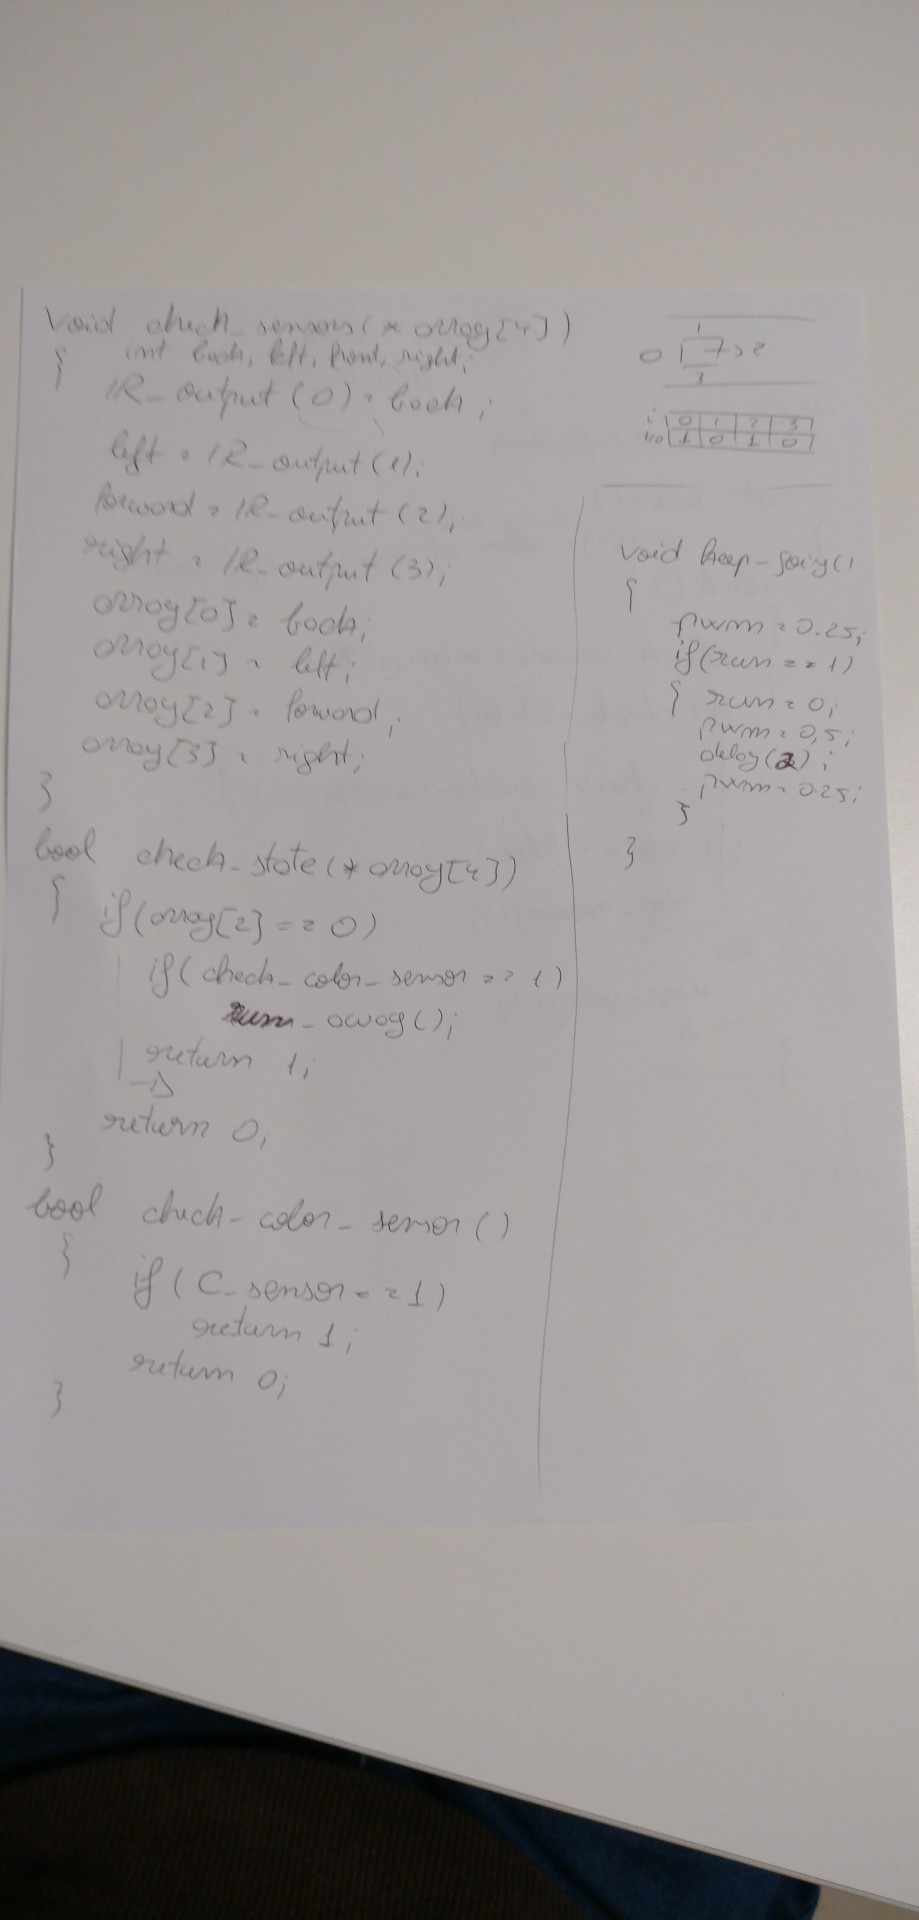 void check_sensors(*array[4])
{ int back, left, front, right;
IR_output(0) = back;
left = IR_output(1);
forword = IR_output(2);
right = IR_output(3);
array[0] = back;
array[1] = left;
array[2] = forword;
array[3] = right;
}
bool check_state(*array[4])
{ if(array[2] == 0)
if(check_color_sensor == 1)
run_away();
return 1;
return 0;
}
bool check_color_sensor()
{
if(C_sensor == 1)
return 1;
return 0;
}
1
0 2
3
i 0 1 2 3
1/0 1 0 1 0
void keep_going()
{
pwm = 0.25;
if(run == 1)
{ run = 0;
pwm = 0,5;
delay(2);
pwm = 0.25;
}
}